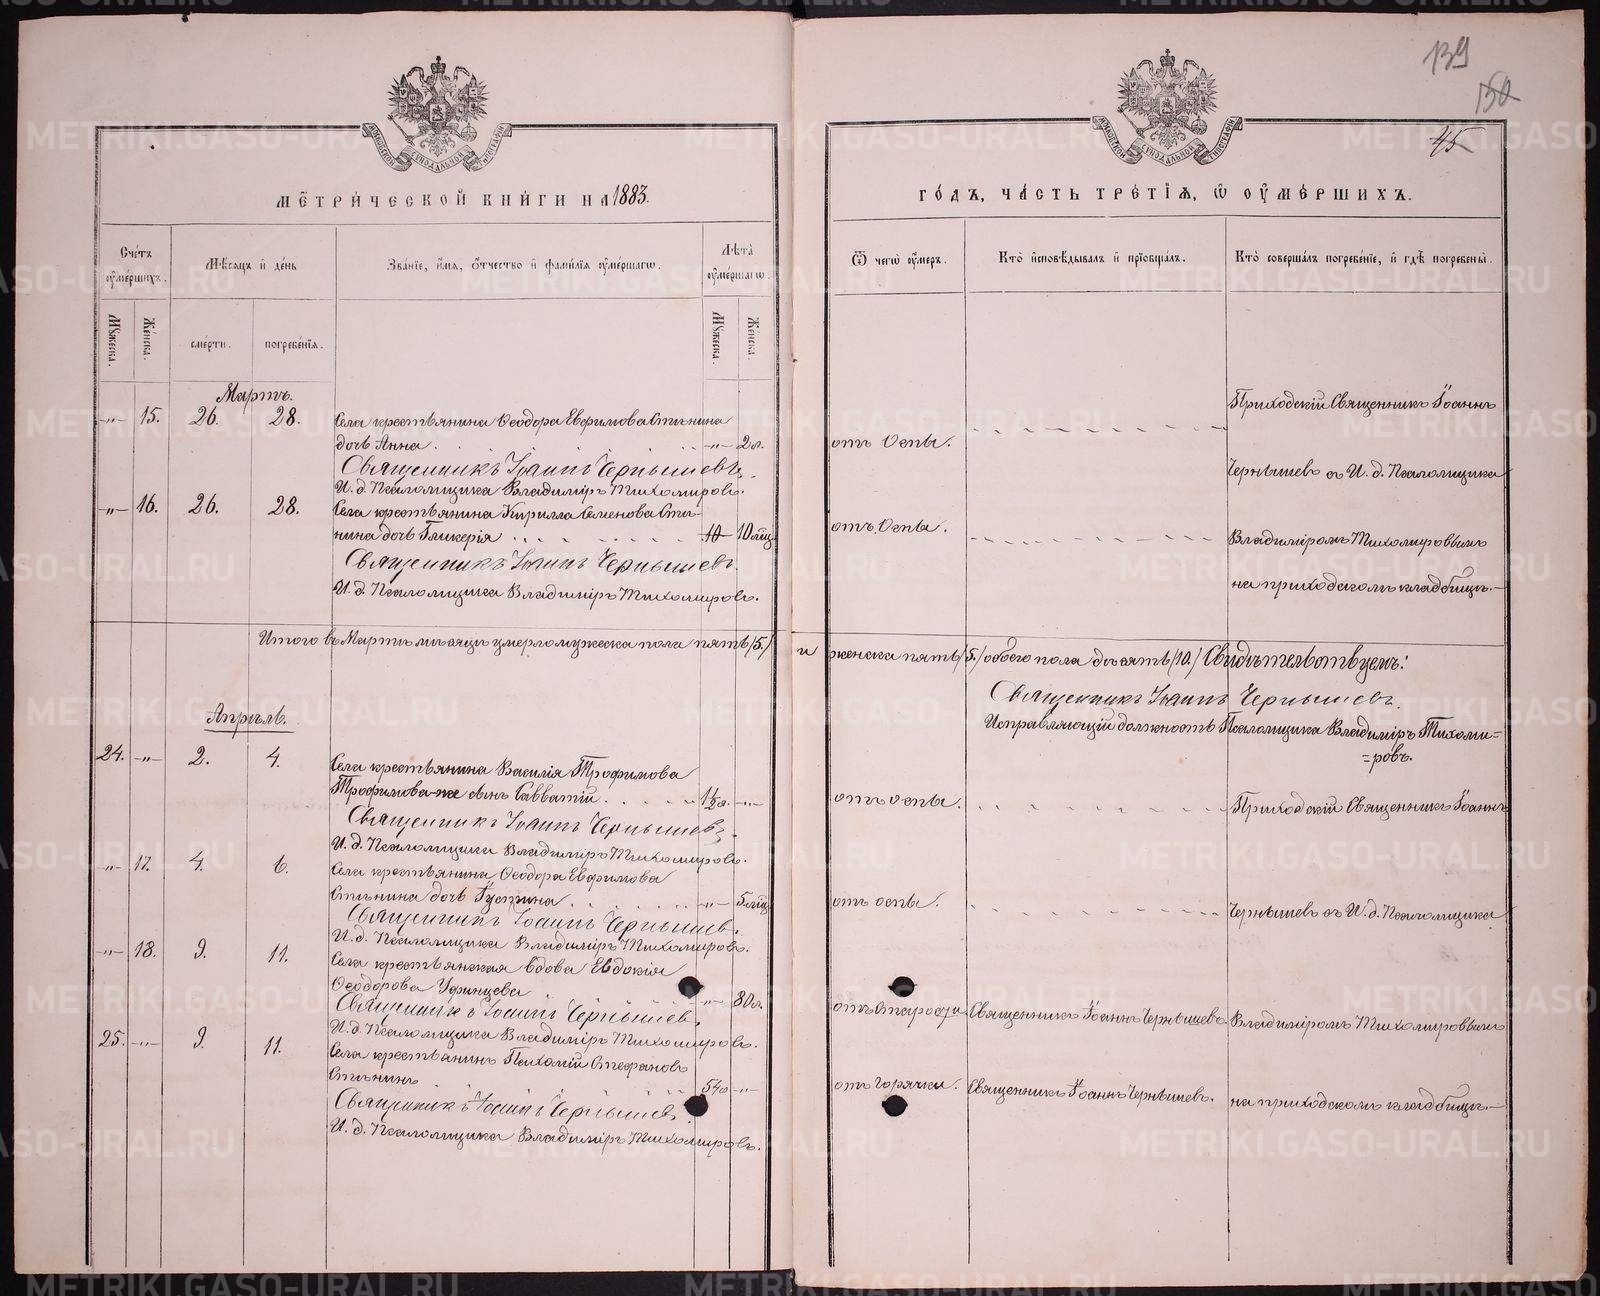 139
150
45
МЕТРИЧЕСКОЙ КНИГИ НА 1883.
ГОДЪ, ЧАСТЬ ТРЕТІЯ, Ѡ ОУМЕРШИХЪ.
Счетъ оумершихъ.
Мѣсяцъ и день
Званіе, имя, отчество и фамилія оумершагѡ.
Лѣта оумершагѡ.
Ѿ чегѡ оумеръ.
Кто исповѣдывалъ и пріобщалъ.
Кто совершалъ погребеніе, и гдѣ погребены.
Мꙋжеска.
Женска.
смерти.
погребенія.
Мꙋжеска.
Женска.
Мартъ.
-„- 15. 26. 28. Села крестьянина Ѳеодора Евфимова Стѣнина
дочь Анна. -„- 2 л. отъ Оспы. Приходскій Священникъ Іоаннъ
Священникъ Іоаннъ Чернышевъ.
И. д. Псаломщика Владиміръ Тихомировъ. Чернышев съ И. д. Псаломщика
-„- 16. 26. 28. Села крестьянина Кирилла Семенова Стѣ-
нина дочь Гликерія 10 10 мѣц. отъ Оспы. Владиміромъ Тихомировымъ
Священникъ Іоаннъ Чернышевъ.
И. д. Псаломщика Владиміръ Тихомировъ. на приходскомъ кладбищѣ.-
Итого въ Мартѣ мѣсяцѣ умерло мужеска пола пять /5./ и женска пять /5./ обоего пола десять /10./ Свидѣтельствуемъ:
Священникъ Іоаннъ Чернышевъ.
Исправляющій должность Псаломщика Владиміръ Тихоми=
=ровъ.
Апрѣль.
24. -„- 2. 4. Села крестьянина Василія Трофимова
Трофимова же сынъ Савватій 1½ г. -„- отъ оспы. Приходскій Священникъ Іоаннъ
Священникъ Іоаннъ Чернышевъ.
И. д. Псаломщика Владиміръ Тихомировъ.
-„- 17. 4. 6. Села крестьянина Ѳеодора Евфимова
Стѣнина дочь Іустина -„- 5 мѣц. отъ оспы. Чернышев съ И. д. Псаломщика
Священникъ Іоаннъ Чернышев.
И. д. Псаломщика Владиміръ Тихомировъ.
-„- 18. 9. 11. Села крестьянская вдова Евдокія
Ѳеодорова Уфинцева -„- 80 л. отъ старости. Священникъ Іоаннъ Чернышев. Владиміромъ Тихомировымъ
Священникъ Іоаннъ Чернышев.
И. д. Псаломщика Владиміръ Тихомировъ.
25. -„- 9. 11. Села крестьянинъ Пахомій Стефановъ
Стѣнинъ 54 -„- отъ горячки. Священникъ Іоаннъ Чернышев. на приходскомъ кладбищѣ.-
Священникъ Іоаннъ Чернышев.
И. д. Псаломщика Владиміръ Тихомировъ.
METRIKI.GASO-URAL.RU